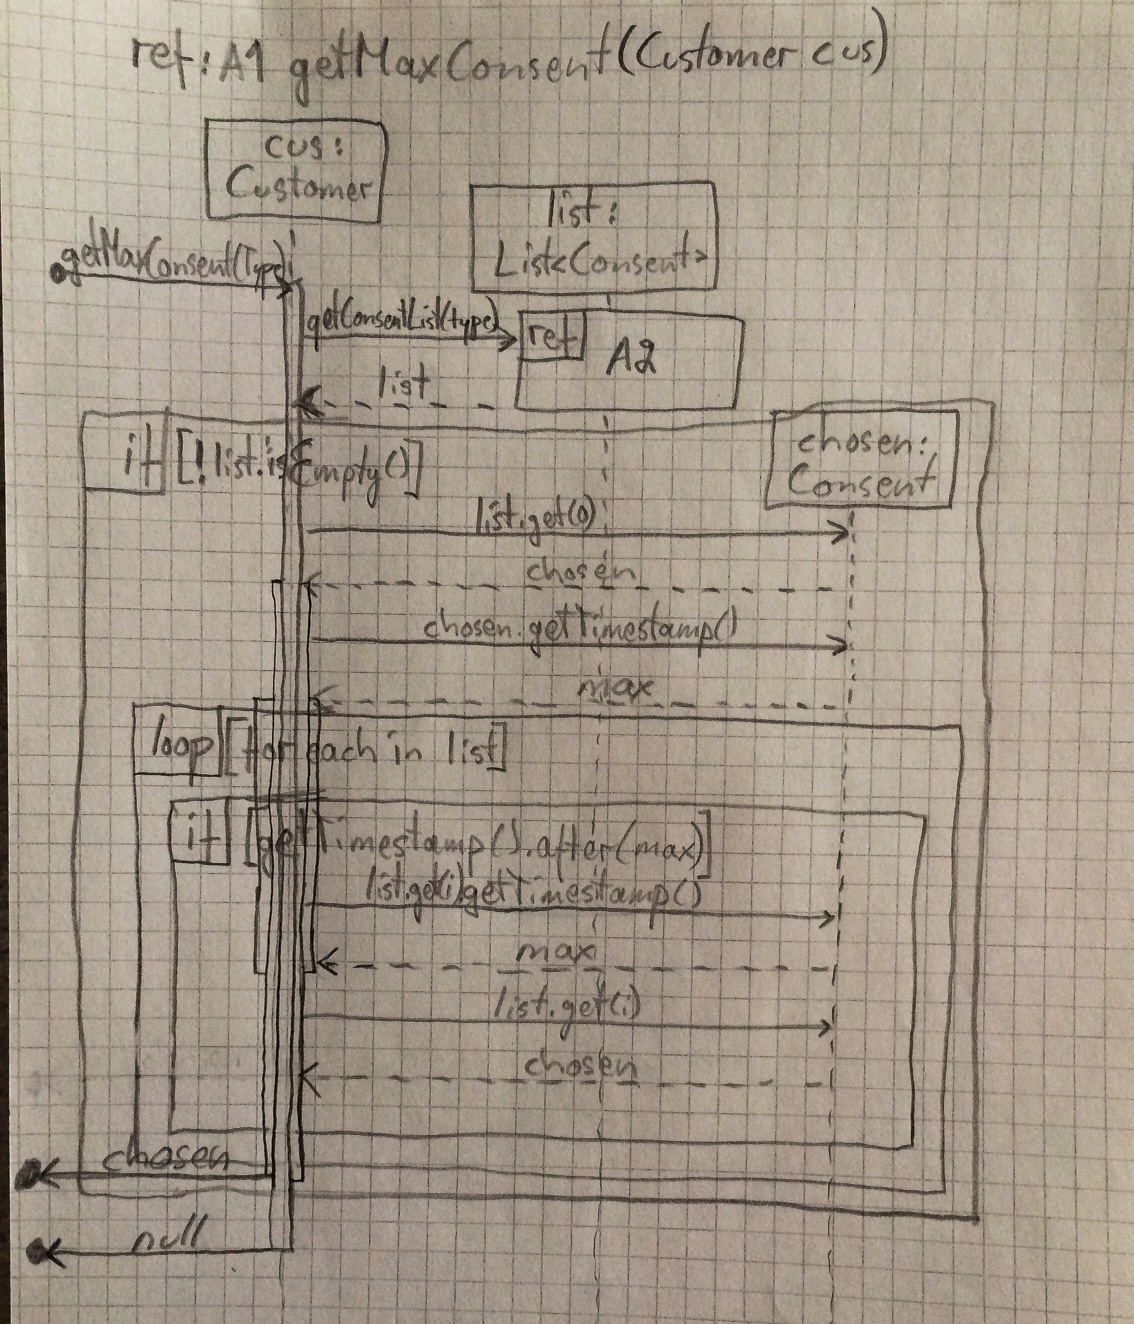 ref: A1 getMaxConsent(Customer cus)
cus:
Customer
list:
List<Consent>
getMaxConsent(Type)
getConsentList(type)
ref
A2
list
if [!list.isEmpty()]
chosen:
Consent
list.get(0)
chosen
chosen.getTimestamp()
max
loop [for each in list]
if [getTimestamp().after(max)]
list.get(i).getTimestamp()
max
list.get(i)
chosen
chosen
null